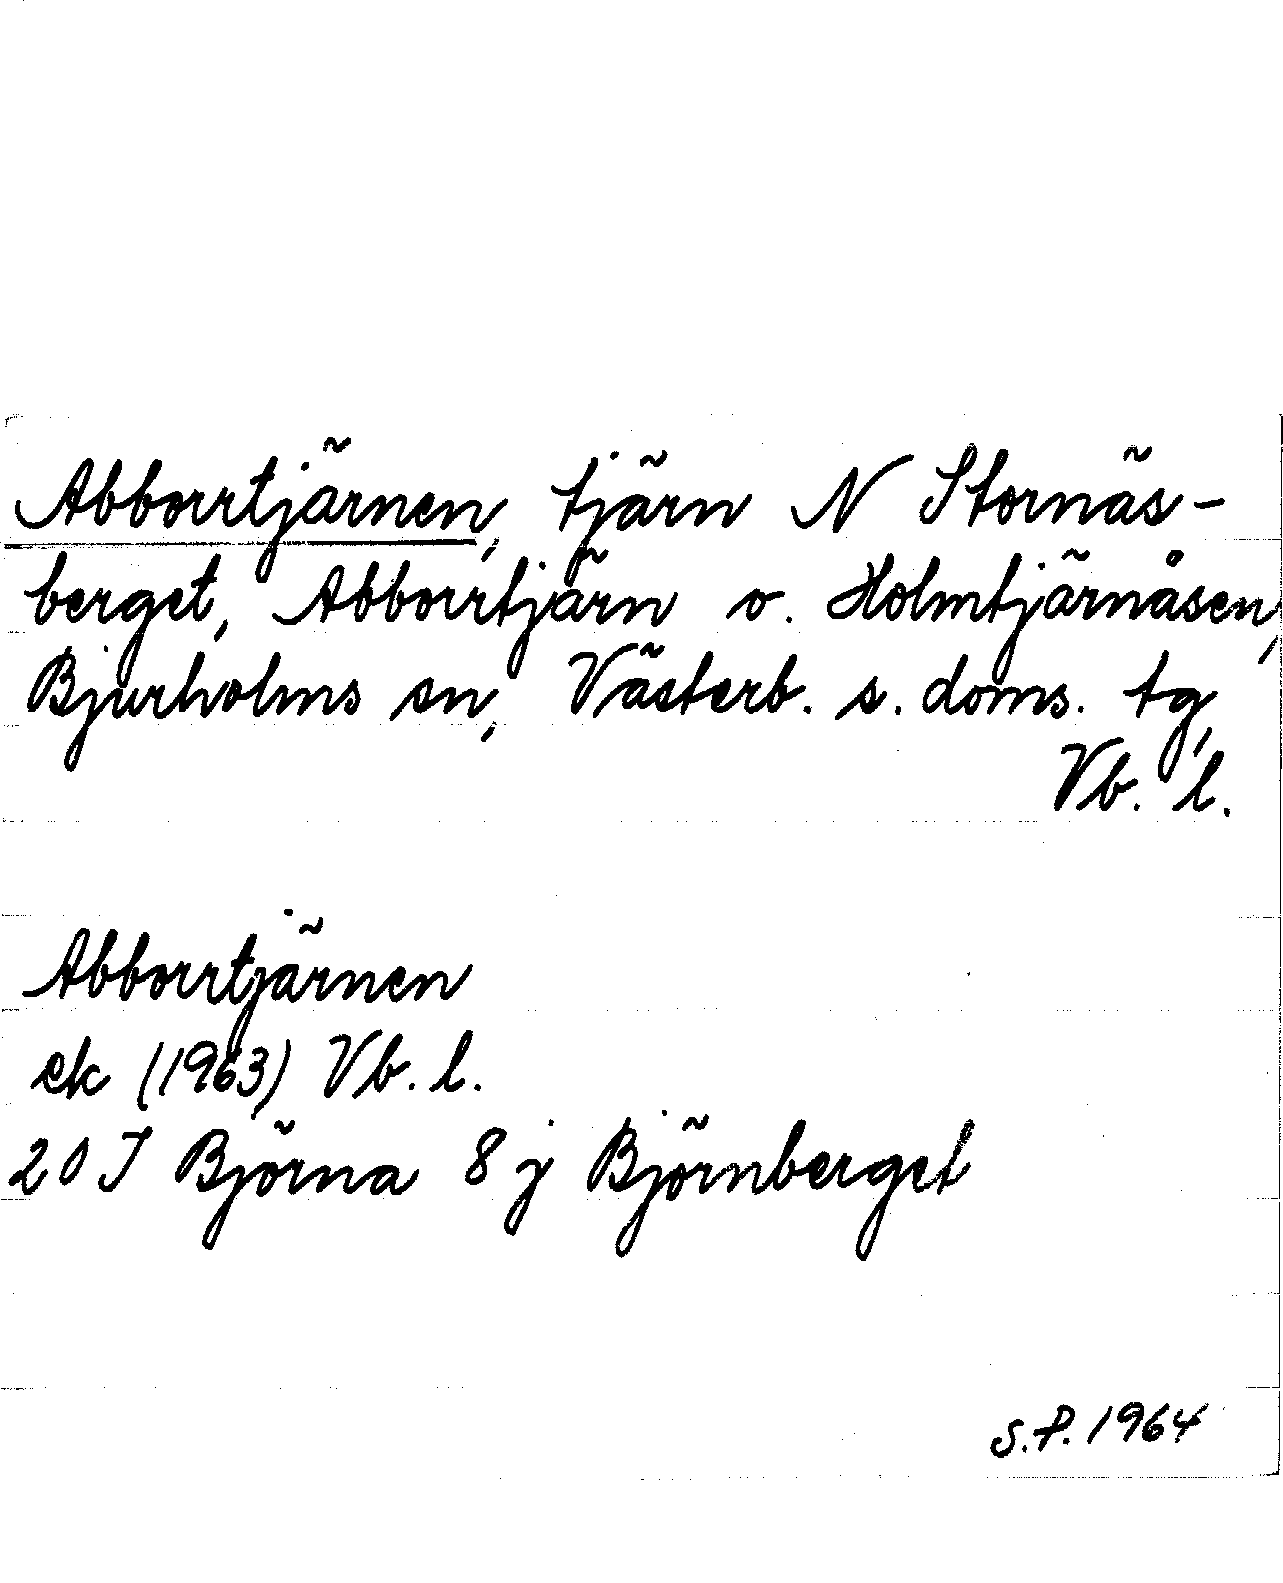 Abborrtjärnen, tjärn N Stornäs-
berget, Abborrtjärn o. Holmtjärnåsen,
Bjurholms sn, Västerb. s. doms. tg,
Vb. l.
Abborrtjärnen
ek (1963) Vb. l.
20 J Björna 8 j Björnberget
S.P. 1964